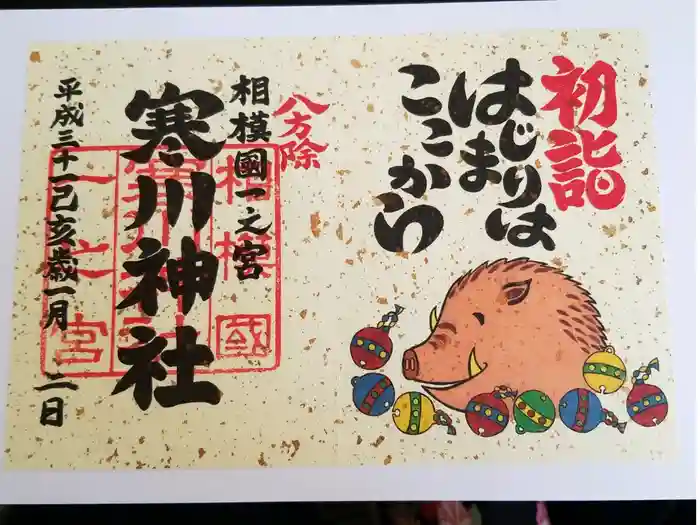 初詣
はじまりは
はじまり
ここから
八方除
相模國一之宮
寒川神社
平成三十一己亥歳一月 二日
相模國
寒川神社
一之宮